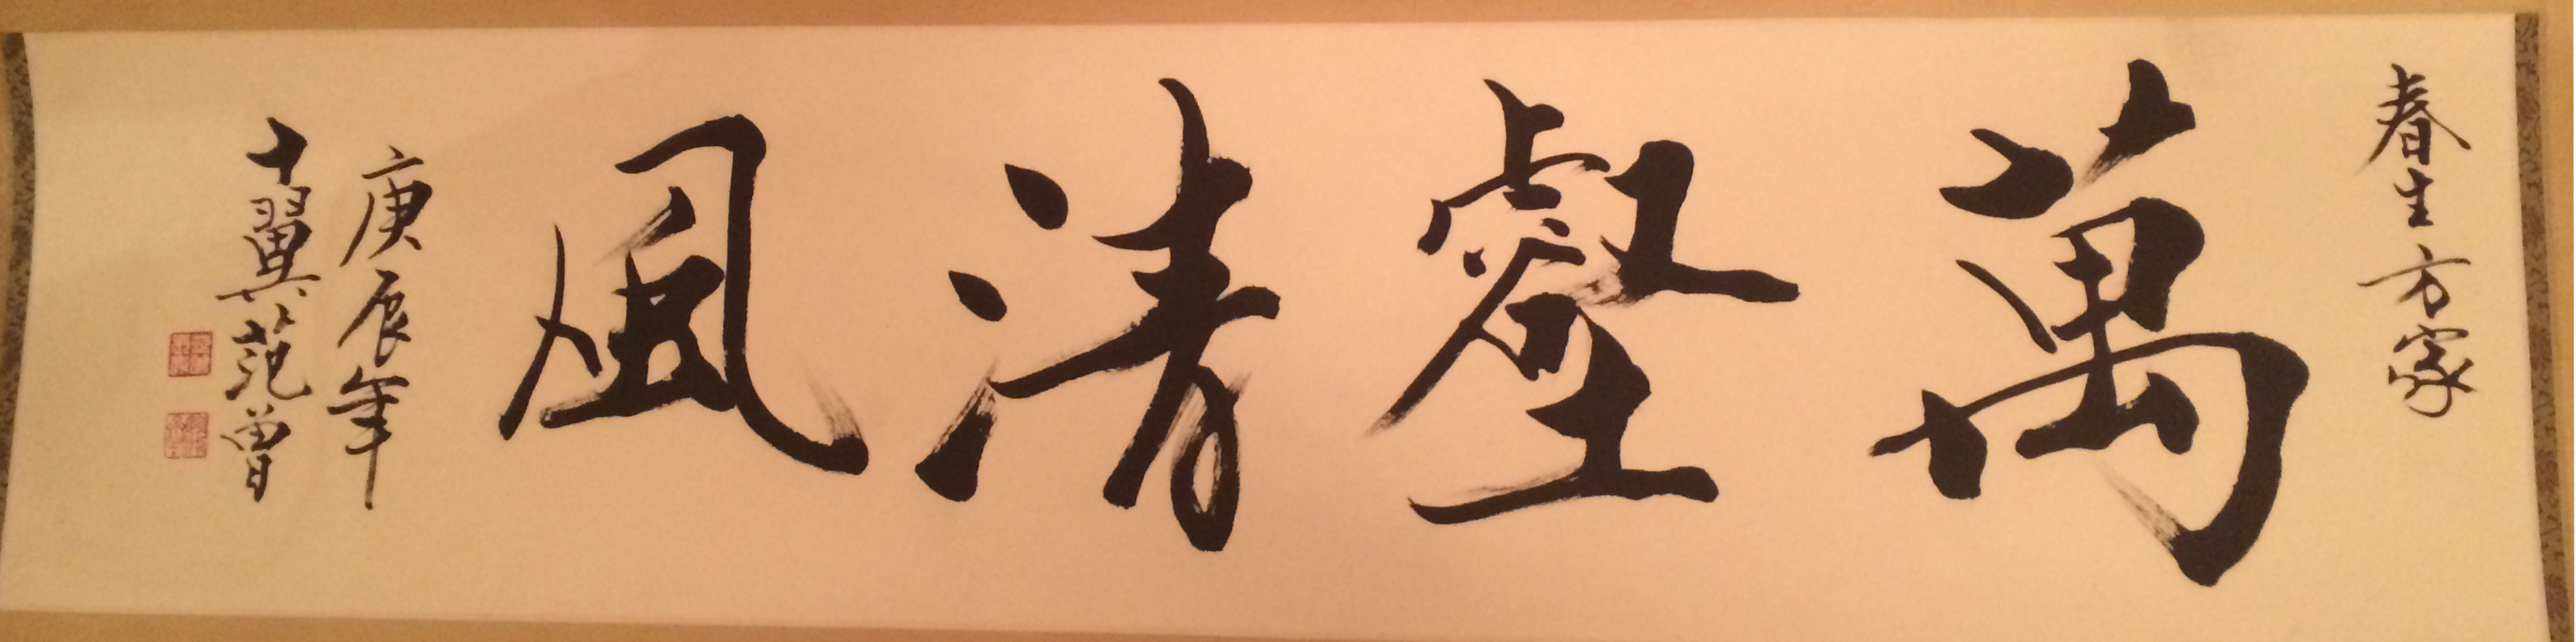 春生方家
萬壑清風
庚辰年
十翼范曾